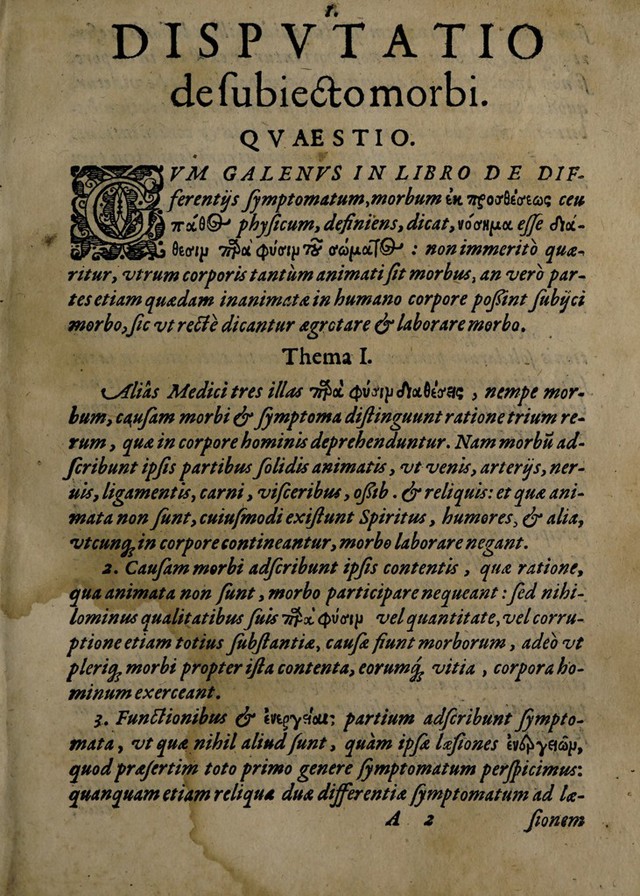 1.
DISPVTATIO
de ſubiecto morbi.
QVAESTIO.
CVM GALENVS IN LIBRO DE DIF-
ferentijs ſymptomatum, morbum ἐκ προσθέσεως ceu
πάθος phyſicum, definiens, dicat, νόσημα eſſe διά-
θεσιμ παρὰ φύσιμ τοῦ σώματος : non immeritò quæ-
ritur, vtrum corporis tantùm animati ſit morbus, an verò par-
tes etiam quædam inanimatæ in humano corpore poßint ſubijci
morbo, ſic vt rectè dicantur ægrotare & laborare morbo.
Thema I.
Aliâs Medici tres illas παρὰ φύσιμ διαθέσεις , nempe mor-
bum, cauſam morbi & ſymptoma diſtinguunt ratione trium re-
rum, quæ in corpore hominis deprehenduntur. Nam morbū ad-
ſcribunt ipſis partibus ſolidis animatis, vt venis, arterijs, ner-
uis, ligamentis, carni, viſceribus, oßib. & reliquis: et quæ ani-
mata non ſunt, cuiuſmodi exiſtunt Spiritus, humores, & alia,
vtcunq; in corpore contineantur, morbo laborare negant.
2. Cauſam morbi adſcribunt ipſis contentis, quæ ratione,
qua animata non ſunt, morbo participare nequeant: ſed nihi-
lominus qualitatibus ſuis παρὰ φύσιμ vel quantitate, vel corru-
ptione etiam totius ſubſtantiæ, cauſæ fiunt morborum, adeò vt
pleriq; morbi propter iſta contenta, eorumq; vitia, corpora ho-
minum exerceant.
3. Functionibus & ἐνεργείαις partium adſcribunt ſympto-
mata, vt quæ nihil aliud ſunt, quàm ipſæ læſiones ἐνεργειῶμ,
quod præſertim toto primo genere ſymptomatum perſpicimus:
quanquam etiam reliquæ duæ differentiæ ſymptomatum ad læ-
A 2 ſionem